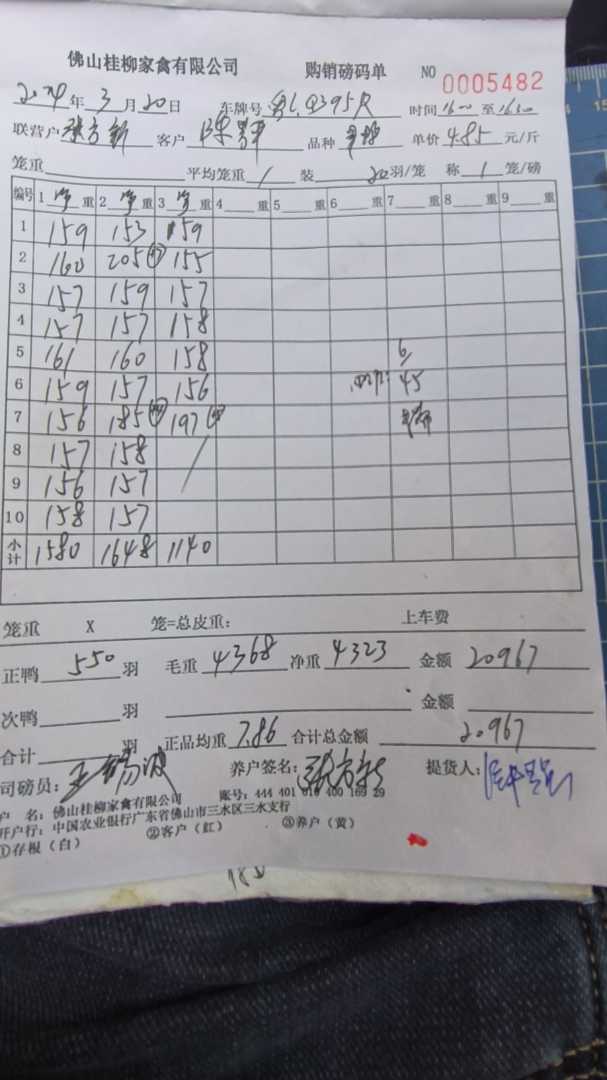 佛山桂柳家禽有限公司 购销磅码单 NO 0005482
2024年3月20日 车牌号 时间 1600 至 1630
联营户 张方新 客户 陈 品种 单价 4.85 元/斤
笼重 平均笼重 / 装 20 羽/笼 称 1 笼/磅
编号 1 净 重 2 净 重 3 净 重 4 重 5 重 6 重 7 重 8 重 9 重
1 159 153 159
2 160 205 155
3 157 159 157
4 157 157 158
5 161 160 158 6/
6 159 157 156 45
7 156 185 197
8 157 158 /
9 156 157
10 158 157
小计 1580 1648 1140
笼重 X 笼=总皮重: 上车费
正鸭 550 羽 毛重 4368 净重 4323 金额 20967
次鸭 羽 金额
合计 羽 正品均重 7.86 合计总金额 20967
司磅员: 养户签名: 张方新 提货人:
户 名: 佛山桂柳家禽有限公司 账号: 444 401 010 400 169 29
开户行: 中国农业银行广东省佛山市三水区三水支行
①存根(白) ②客户(红) ③养户(黄)